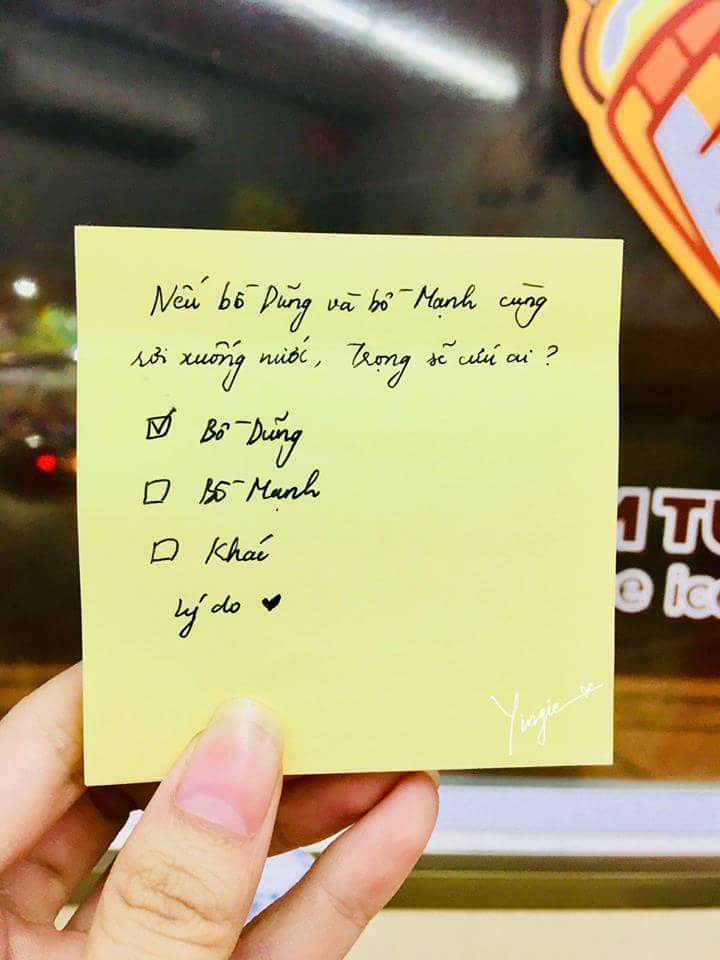 Nếu bố Dũng và bố Mạnh cùng
rơi xuống nước, Trọng sẽ cứu ai?
Bố Dũng
Bố Mạnh
Khác
Lý do
Yingie
TU
e ice